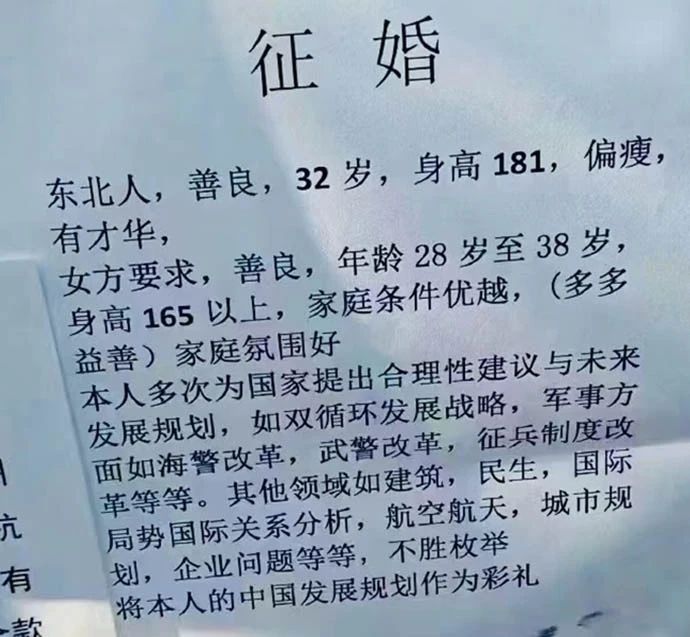 征 婚
东北人，善良，32 岁，身高 181，偏瘦，
有才华，
女方要求，善良，年龄 28 岁至 38 岁，
身高 165 以上，家庭条件优越，（多多
益善）家庭氛围好
本人多次为国家提出合理性建议与未来
发展规划，如双循环发展战略，军事方
面如海警改革，武警改革，征兵制度改
革等等。其他领域如建筑，民生，国际
局势国际关系分析，航空航天，城市规
划，企业问题等等，不胜枚举
将本人的中国发展规划作为彩礼
抗
有
款